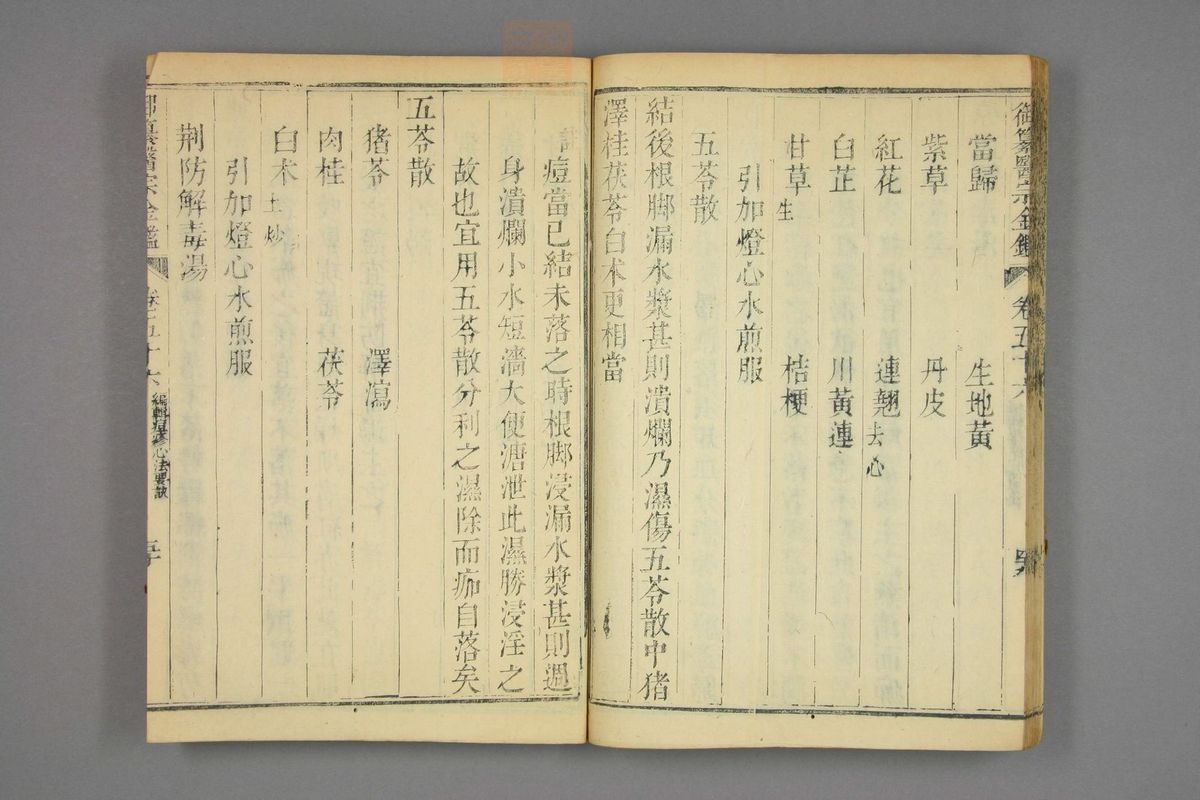 御纂醫宗金鑑 卷五十六
當歸 生地黃
紫草 丹皮
紅花 連翹去心
白芷 川黃連
甘草生 桔梗
引加燈心水煎服
五苓散
結後根脚漏水漿甚則潰爛乃濕傷五苓散中猪
澤桂茯苓白朮更相當
痘當已結未落之時根脚浸漏水漿甚則遍
身潰爛小水短濇大便溏泄此濕勝浸淫之
故也宜用五苓散分利之濕除而痂自落矣
五苓散
猪苓 澤瀉
肉桂 茯苓
白朮土炒
引加燈心水煎服
荆防解毒湯
御纂醫宗金鑑 卷五十六 編輯痘疹心法要訣